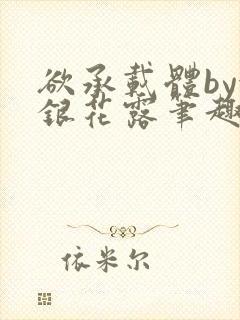 欲承載體by
銀花露筆趣
依米尔